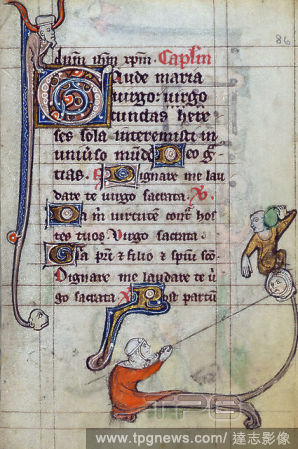 86
dnm ihm xpm. Caplm
Gaude maria
uirgo: uirgo
cunctas here
ses sola interemisti in
uniuso mundo Deo g
tias. Dignare me lau
dare te uirgo sacrata. V
Da m uirtute cont hos
tes tuos. Uirgo sacrata.
Gla pri & filio & spiu sco.
Dignare me laudare te ui
go sacrata. Post partu
TPG
www.tpgnews.com/ 達志影像